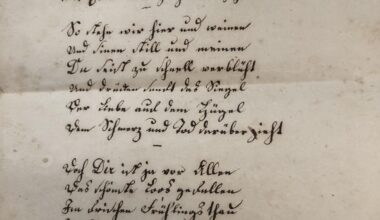 So stehn wir hier und weinen
Und sinnen still und meinen
Du seist zu schnell verblüht
Und drücken sanft das Siegel
Der Liebe auf dem Hügel
Dem Schmerz und Tod darüber zieht
Doch Dir ist ja vor Allen
Das schönste Loos gefallen
Im frischen Frühlingsthau